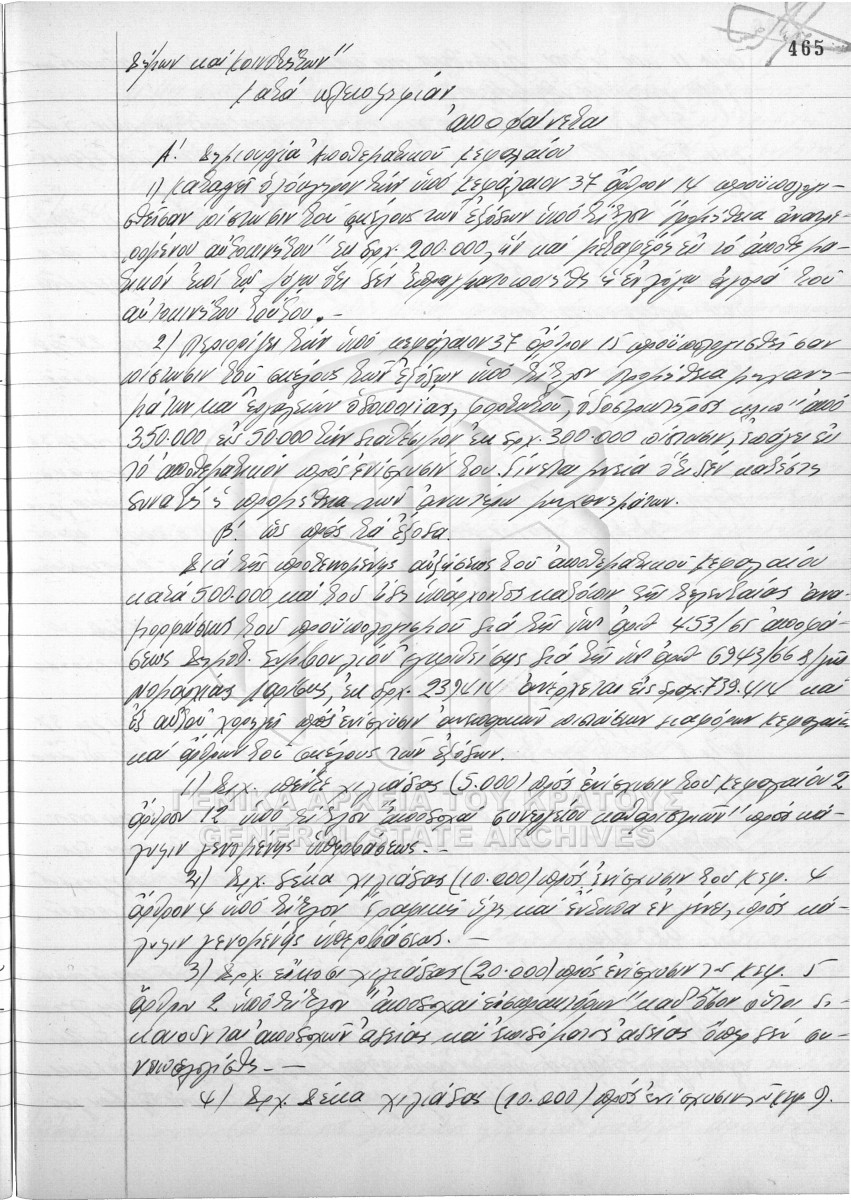 465
Δήμων και Κοινοτήτων"
Κατά πλειοψηφίαν
ἀποφαίνεται
Α! Δημιουργία Ἀποθεματικοῦ Κεφαλαίου
1) Καταργεῖ ὁλόκληρον τήν ὑπό Κεφάλαιον 37 ἄρθρον 14 προϋπολογι-
σθεῖσαν πίστωσιν τοῦ σκέλους τῶν ἐξόδων ὑπό τίτλον "Προμήθεια ἀνατρε-
πομένου αὐτοκινήτου" ἐκ δρχ. 200.000, ἥν καί μεταφέρει εἰς τό ἀποθεμα-
τικόν ἐπί τῷ λόγῳ ὅτι δέν ἐπραγματοποιήθη ἡ ἐν λόγῳ ἀγορά τοῦ
αὐτοκινήτου τούτου.-
2) Περιορίζει τήν ὑπό κεφάλαιον 37 ἄρθρον 15 προϋπολογισθεῖσαν
πίστωσιν τοῦ σκέλους τῶν ἐξόδων ὑπό τίτλον Προμήθεια μηχανη-
μάτων καί ἐργαλείων ὁδοποιΐας, φορτωτοῦ, ὁδοστρωτῆρος κλπ" ἀπό
350.000 εἰς 50.000 τήν διαθέσιμον ἐκ δρχ. 300.000 πίστωσιν, ἐπάγει εἰς
τό ἀποθεματικόν πρός ἐνίσχυσίν του. Γίνεται μνεία ὅτι δέν κατέστη
δυνατή ἡ προμήθεια τῶν ἀνωτέρω μηχανημάτων.
Β! ὡς πρός τά ἔξοδα.
Διά τῆς προτεινομένης αὐξήσεως τοῦ ἀποθεματικοῦ Κεφαλαίου
κατά 500.000 καί τοῦ ἤδη ὑπάρχοντος κατόπιν τῆς τελευταίας ἀνα-
μορφώσεως τοῦ προϋπολογισμοῦ διά τῆς ὑπ' ἀριθ 453/65 ἀποφά-
σεως Δημοτ. Συμβουλίου ἐγκριθείσης διά τῆς ὑπ' ἀριθ 6943/66 τῆς
Νομαρχίας Λαρίσης, ἐκ δρχ. 239414 ἀνέρχεται εἰς δρχ. 739.414 καί
ἐξ αὐτοῦ χορηγεῖ πρός ἐνίσχυσιν ἀνεπαρκῶν πιστώσεων διαφόρων κεφαλαίων
καί ἄρθρων τοῦ σκέλους τῶν ἐξόδων.
1) Δρχ. πέντε χιλιάδας (5.000) πρός ἐνίσχυσιν τοῦ κεφαλαίου 2
ἄρθρον 12 ὑπό τίτλον "ἀποδοχαί συνεργείου καθαρισμῶν" πρός κά-
λυψιν γενομένης ὑπερβάσεως.-
2) Δρχ. δέκα χιλιάδας (10.000) πρός ἐνίσχυσιν τοῦ κεφ. 4
ἄρθρον 4 ὑπό τίτλον "Γραφική ὕλη καί ἔντυπα ἐν γένει, πρός κά-
λυψιν γενομένης ὑπερβάσεως.-
3) Δρχ. εἴκοσι χιλιάδας (20.000) πρός ἐνίσχυσιν τοῦ κεφ. 5
ἄρθρου 2 ὑπό τίτλον "ἀποδοχαί εἰσπρακτόρων" καθ' ὅσον οὗτοι δι-
καιοῦνται ἀποδοχῶν ἀδείας καί ἐπιδόματος ἀδείας ὅπερ δέν συ-
νυπελογίσθη.-
4) Δρχ. δέκα χιλιάδας (10.000) πρός ἐνίσχυσιν τοῦ κεφ 9.
ΓΕΝΙΚΑ ΑΡΧΕΙΑ ΤΟΥ ΚΡΑΤΟΥΣ
GENERAL STATE ARCHIVES